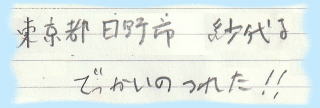 東京都日野市 紗代子
でっかいのつれた!!